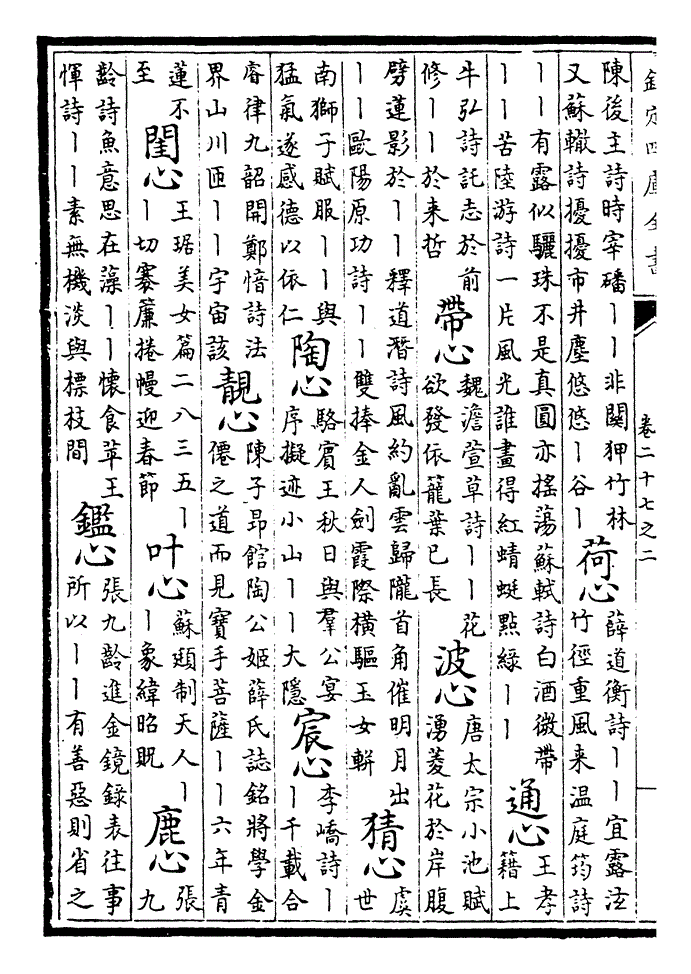 欽定四庫全書
卷二十七之二
陳後主詩時宰磻丨丨非關狎竹林
又蘇轍詩擾擾市井塵悠悠丨谷丨
荷心
薛道衡詩丨丨宜露泫
竹徑重風来温庭筠詩
丨丨有露似驪珠不是真圓亦搖蕩蘇軾詩白酒微帶
丨丨苦陸游詩一片風光誰畫得紅蜻蜓點緑丨丨
通心
王孝
籍上
牛弘詩託志於前
修丨丨於来哲
帶心
魏澹萱草詩丨丨花
欲發依籠葉已長
波心
唐太宗小池賦
湧菱花於岸腹
劈蓮影於丨丨釋道潛詩風約亂雲歸隴首角催明月出
丨丨歐陽原功詩丨丨雙捧金人劍霞際橫驅玉女軿
猜心
虞
世
南獅子賦服丨丨與
猛氣遂感德以依仁
陶心
駱賓王秋日與羣公宴
序擬迹小山丨丨大隱
宸心
李嶠詩丨
丨千載合
睿律九韶開鄭愔詩法
界山川匝丨丨宇宙該
靚心
陳子昂館陶公姬薛氏誌銘將學金
僊之道而見寶手菩薩丨丨六年青
蓮不
至
閨心
王琚美女篇二八三五丨
丨切褰簾捲幔迎春節
叶心
蘇頲制天人丨
丨象緯昭貺
鹿心
張
九
齡詩魚意思在藻丨丨懷食苹王
惲詩丨丨素無機淡與標枝間
鑑心
張九齡進金鏡錄表往事
所以丨丨有善惡則省之